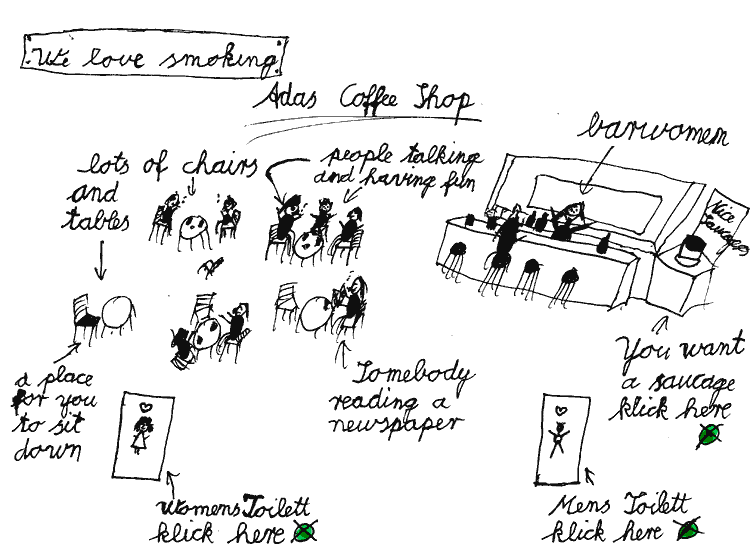 We love smoking
Adas Coffee Shop
barwomen
lots of chairs
and
tables
people talking
and having fun
Nice
Saucages
a place
for you
to sit
down
Somebody
reading a
newspaper
You want
a saucage
klick here
womens Toilett
klick here
Mens Toilett
klick here